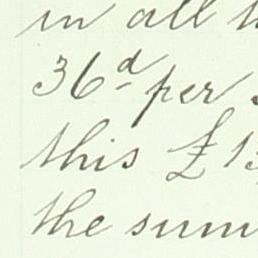 in all
36d per
this £13
the sum